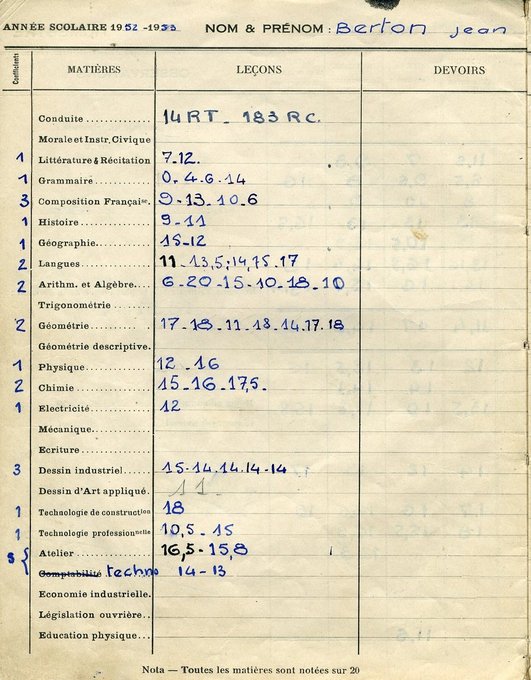 ANNÉE SCOLAIRE 1952-1953 NOM & PRÉNOM : Berton jean
Coefficients MATIÈRES LEÇONS DEVOIRS
Conduite 14 RT - 183 RC.
Morale et Instr. Civique
1 Littérature & Récitation 7-12.
1 Grammaire 0. 4-6-14
3 Composition Française. 9-13-10.6
1 Histoire 9-11
1 Géographie 15-12
2 Langues 11-13,5; 14,75-17
2 Arithm. et Algèbre 6-20-15-10-18-10
Trigonométrie
2 Géométrie 17-18-11-18-14.17.18
Géométrie descriptive.
1 Physique 12-16
2 Chimie 15-16-17,5-
1 Electricité 12
Mécanique
Ecriture
3 Dessin industriel 15-14.14.14-14
Dessin d'Art appliqué. 11.
1 Technologie de construction 18
1 Technologie professionnelle 10,5-15
5 Atelier 16,5-15,8
Comptabilité techno 14-13
Economie industrielle.
Législation ouvrière
Education physique
Nota — Toutes les matières sont notées sur 20